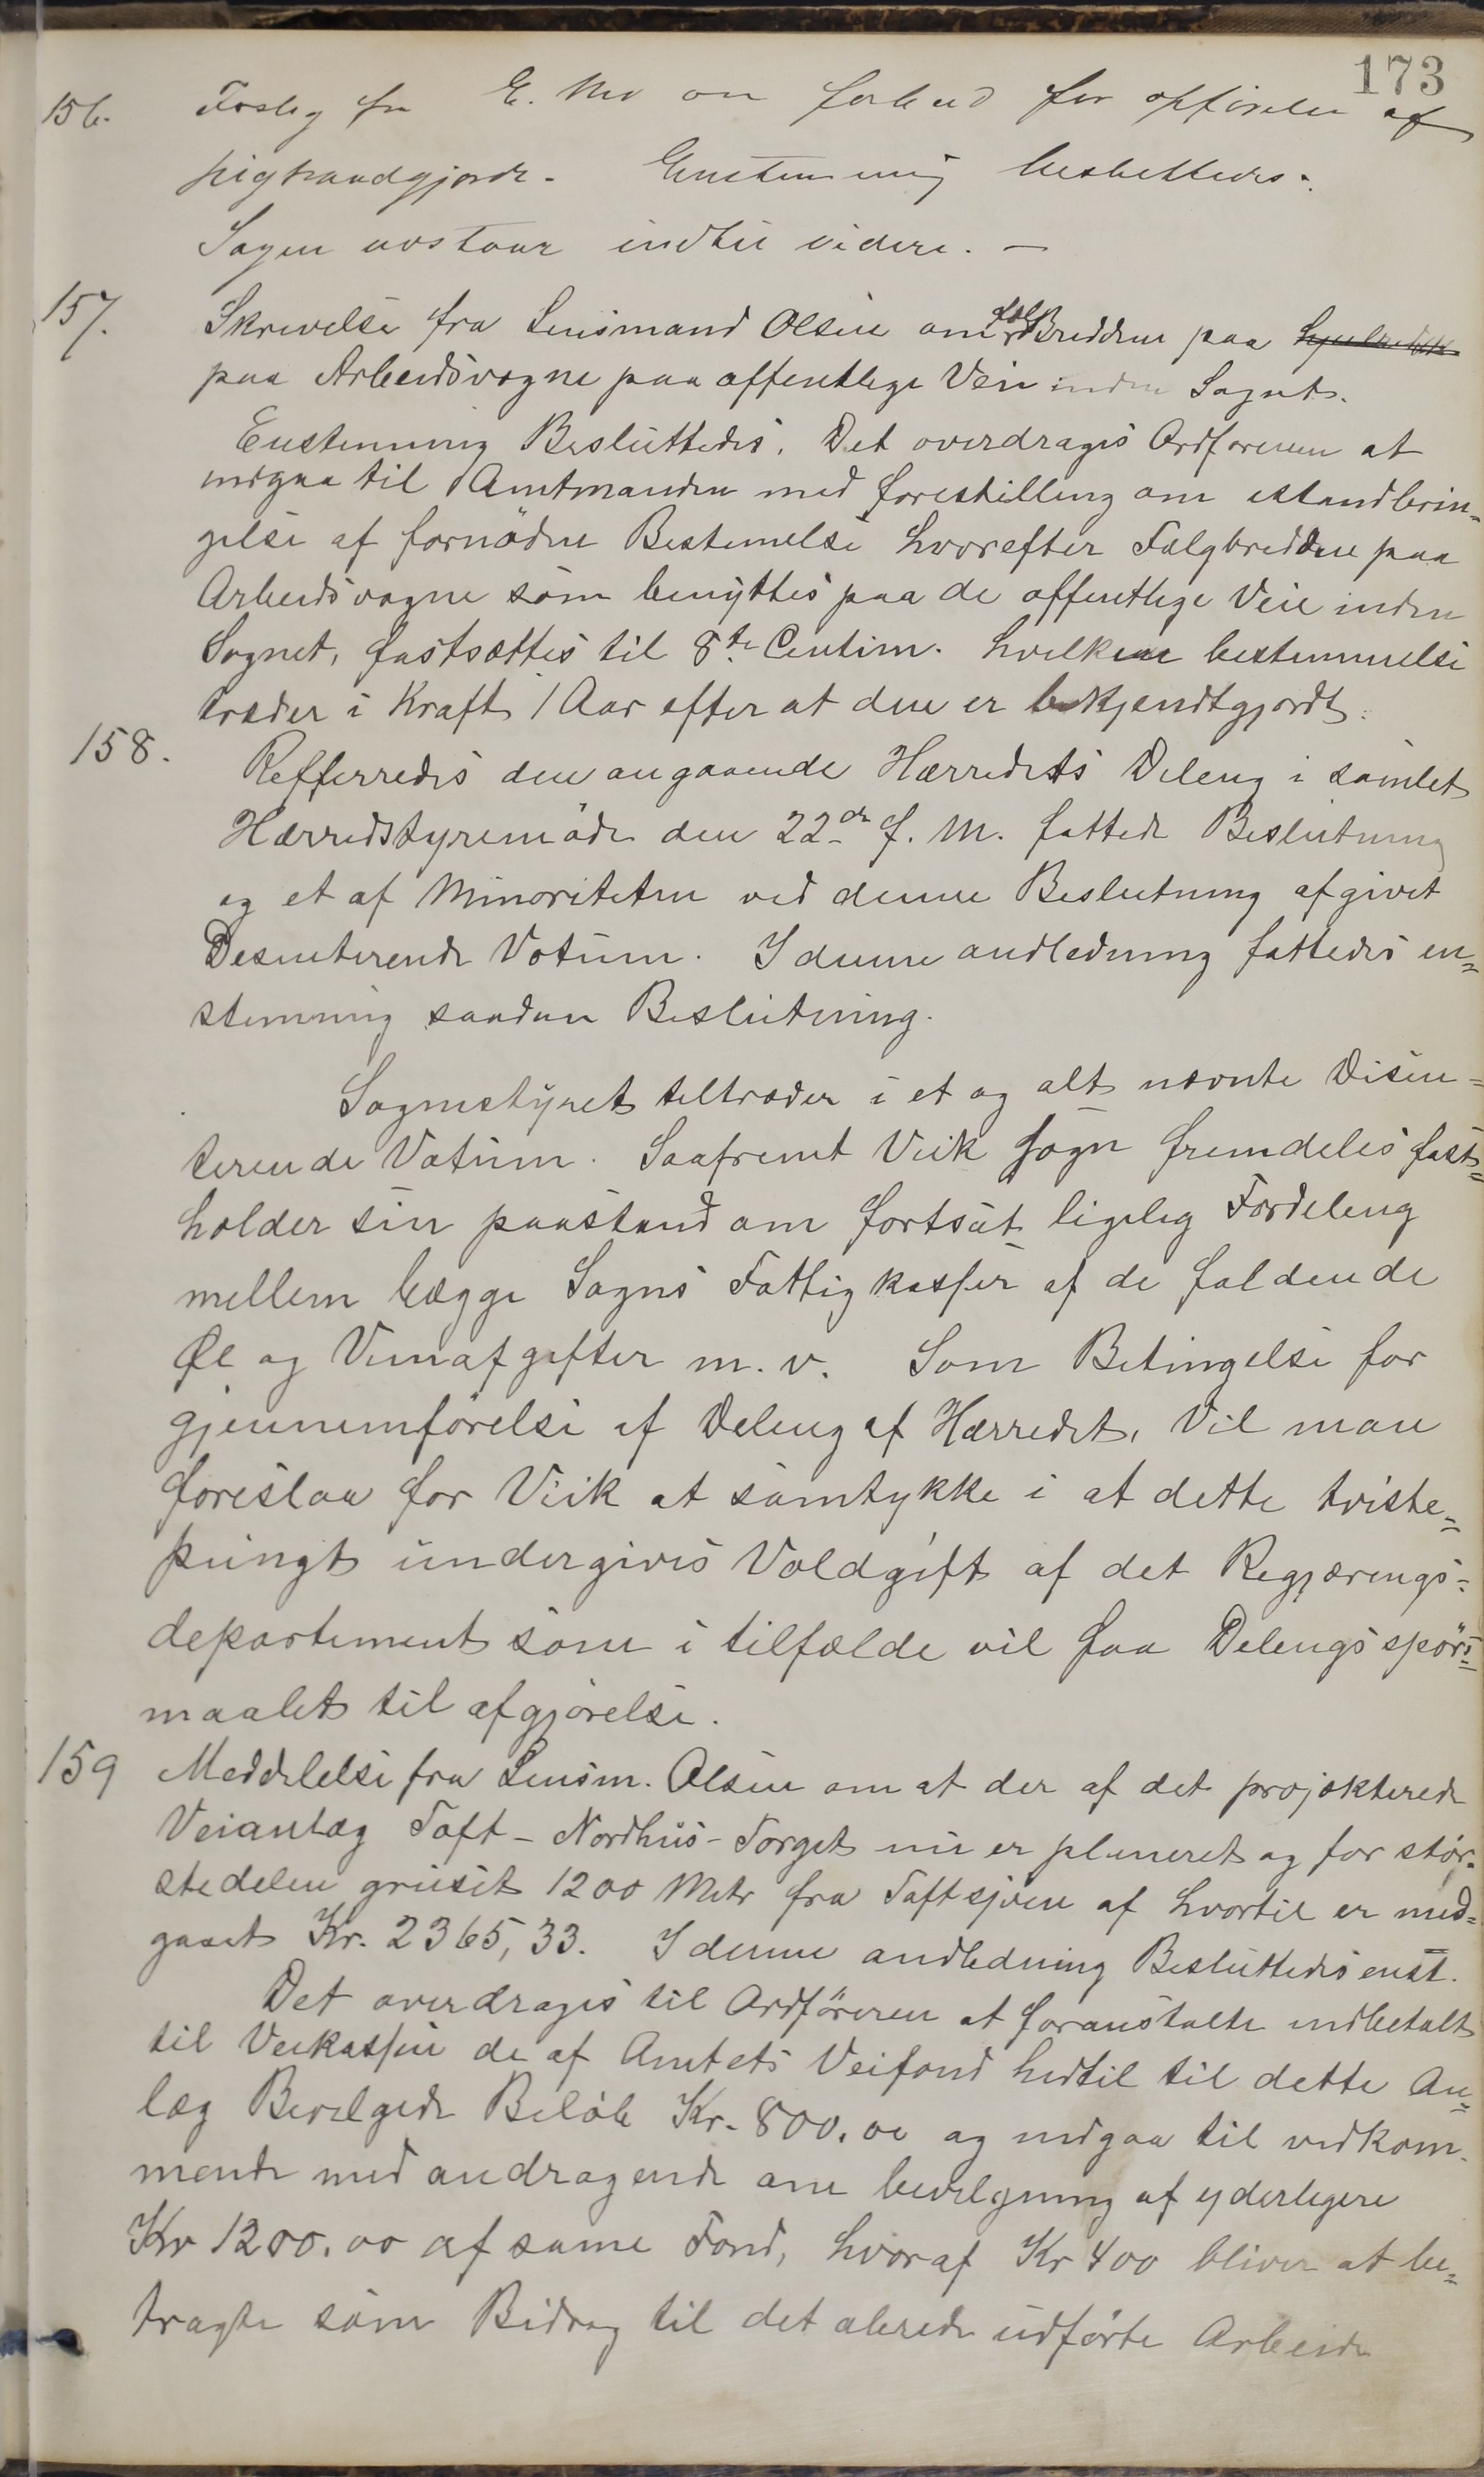 173
156. Forslag fra E. Mo om forbud for opførelse af
pigtraadgjærde. Enstemmig besluttedes.
Sagen udstaar indtil videre. —
157. Skrivelse fra Lensmand Olsen om Fælg Bredden paa
paa Arbeidsvogne paa offentlige Veie inden Sognet.
Enstemmig Besluttedes. Det overdrages Ordføreren at
indgaa til Amtmanden med forestilling om istandbrin-
gelse af fornödne Bestemelse hvorefter Fælgbredden paa
Arbeidsvogne som benyttes paa de offentlige Veie inden
Sognet, fastsættes til 8te Centim. hvilken bestemmelse
træder i Kraft 1 Aar efter at den er bekjendtgjordt.
158. Refferredes den angaaende Hærredets Deling i samlet
Hærredstyremöde den 22de f. M. fattede Beslutning
og et af Minoriteten ved denne Beslutning afgivet
Desenterende Votum. I denne andledning fattedes en=
stemmig saadan Beslutning.
Sognestyret tiltræder i et og alt nævnte Disen=
terende Votum. Saafremt Veik Sogn fremdeles fast=
holder sin paastand om fortsat ligelig Fordeling
mellem begge Sogns Fattigkasser af de faldende
Øl og Vinafgifter m. v. Som Betingelse for
gjennemförelse af Deling af Hærredet, Vil man
foreslaa for Veik at samtykke i at dette triste=
pungt undergives Voldgift af det Regjærings=
departement som i tilfælde vil faa Delings spörs=
maalet til afgjörelse.
159 Meddelelse fra Lensm. Olsen om at der af det projekterede
Veianlæg Toft - Nordhus - Torget nu er planeret og for stör-
stedelen gruset 1200 Metr fra Toftsjöen af hvortil er med=
gaaet Kr. 2365,33. I denne andledning Besluttedes enst.
Det overdrages til Ordföreren at foranstalte indbetalt
til Veikassen de af Amtets Veifond hidtil til dette An=
læg Bevilgede Belöb Kr. 800.00 og indgaa til vedkom-
mende med andragende om bevilgning af yderligere
Kr 1200.00 af same Fond, hvoraf Kr 400 bliver at be=
tragte som Bidrag til det alerede udförte Arbeide